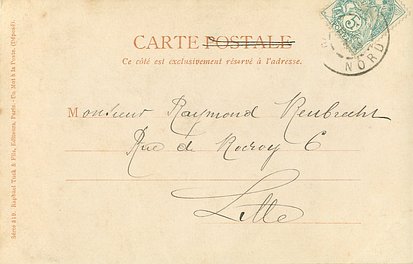 CARTE POSTALE
Ce côté est exclusivement réservé à l'adresse.
5
NORD
Monsieur Raymond Reubrecht
Rue d Rocroy 6
Lille
Série 319. Raphael Tuck & Fils, Editeurs, Paris.